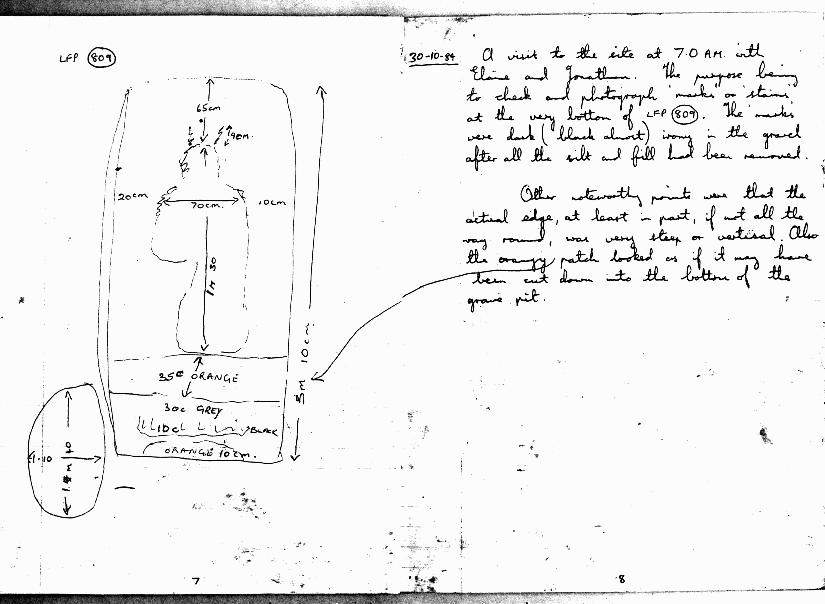 LFP 809
65cm
90m.
20cm
70cm.
10cm
1M 30
3M 10cm
35c ORANGE
30c GREY
10c BLACK
ORANGE 10cm.
1.10
40
7
30-10-84 A visit to the site at 7.0 A.M. with
Elaine and Jonathan. The purpose being
to check and photograph "marks" or stains
at the very bottom of LFP 809. The marks
were dark (black almost) irony in the gravel
after all the silt and fill had been removed.
Other noteworthy points were that the
actual edge, at least in part, if not all the
way round, was very steep or vertical. Also
the orangy patch looked as if it may have
been cut down into the bottom of the
grave pit.
8